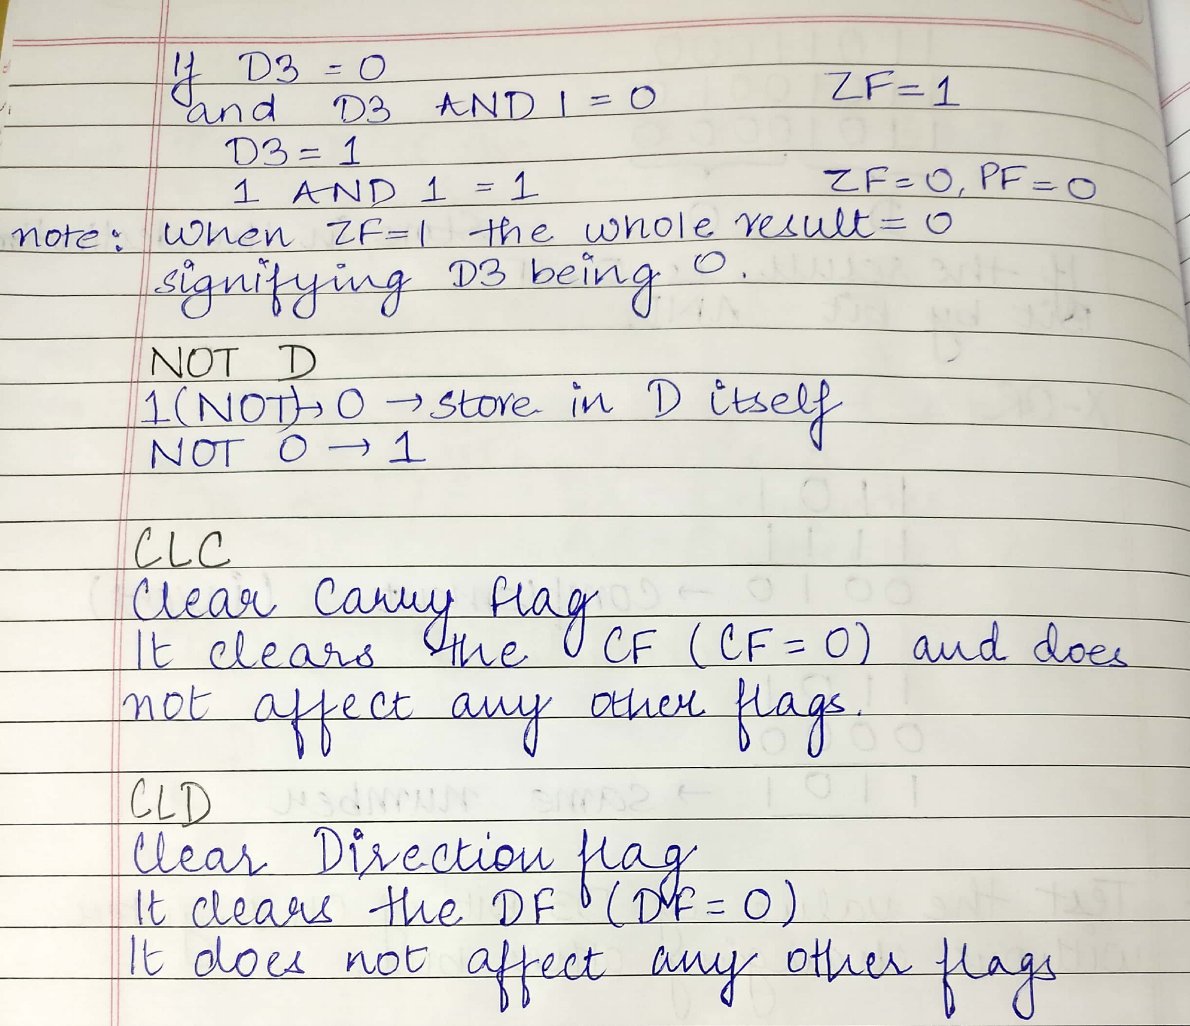 If D3 = 0
and D3 AND 1 = 0 ZF=1
D3 = 1
1 AND 1 = 1 ZF=0, PF=0
note: When ZF=1 the whole result=0
signifying D3 being 0.
NOT D
1(NOT)→ 0 → store in D itself
NOT 0 → 1
CLC
Clear Carry flag
It clears the CF (CF=0) and does
not affect any other flags.
CLD
Clear Direction flag
It clears the DF (DF=0)
It does not affect any other flags